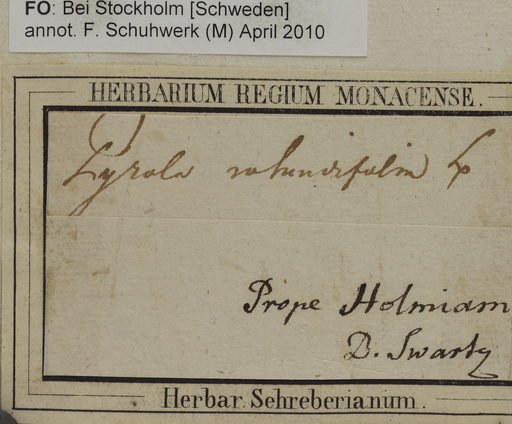 FO: Bei Stockholm [Schweden]
annot. F. Schuhwerk (M) April 2010
HERBARIUM REGIUM MONACENSE.
Pyrola rotundifolia L
Prope Holmiam
D. Swartz
Herbar. Schreberianum.